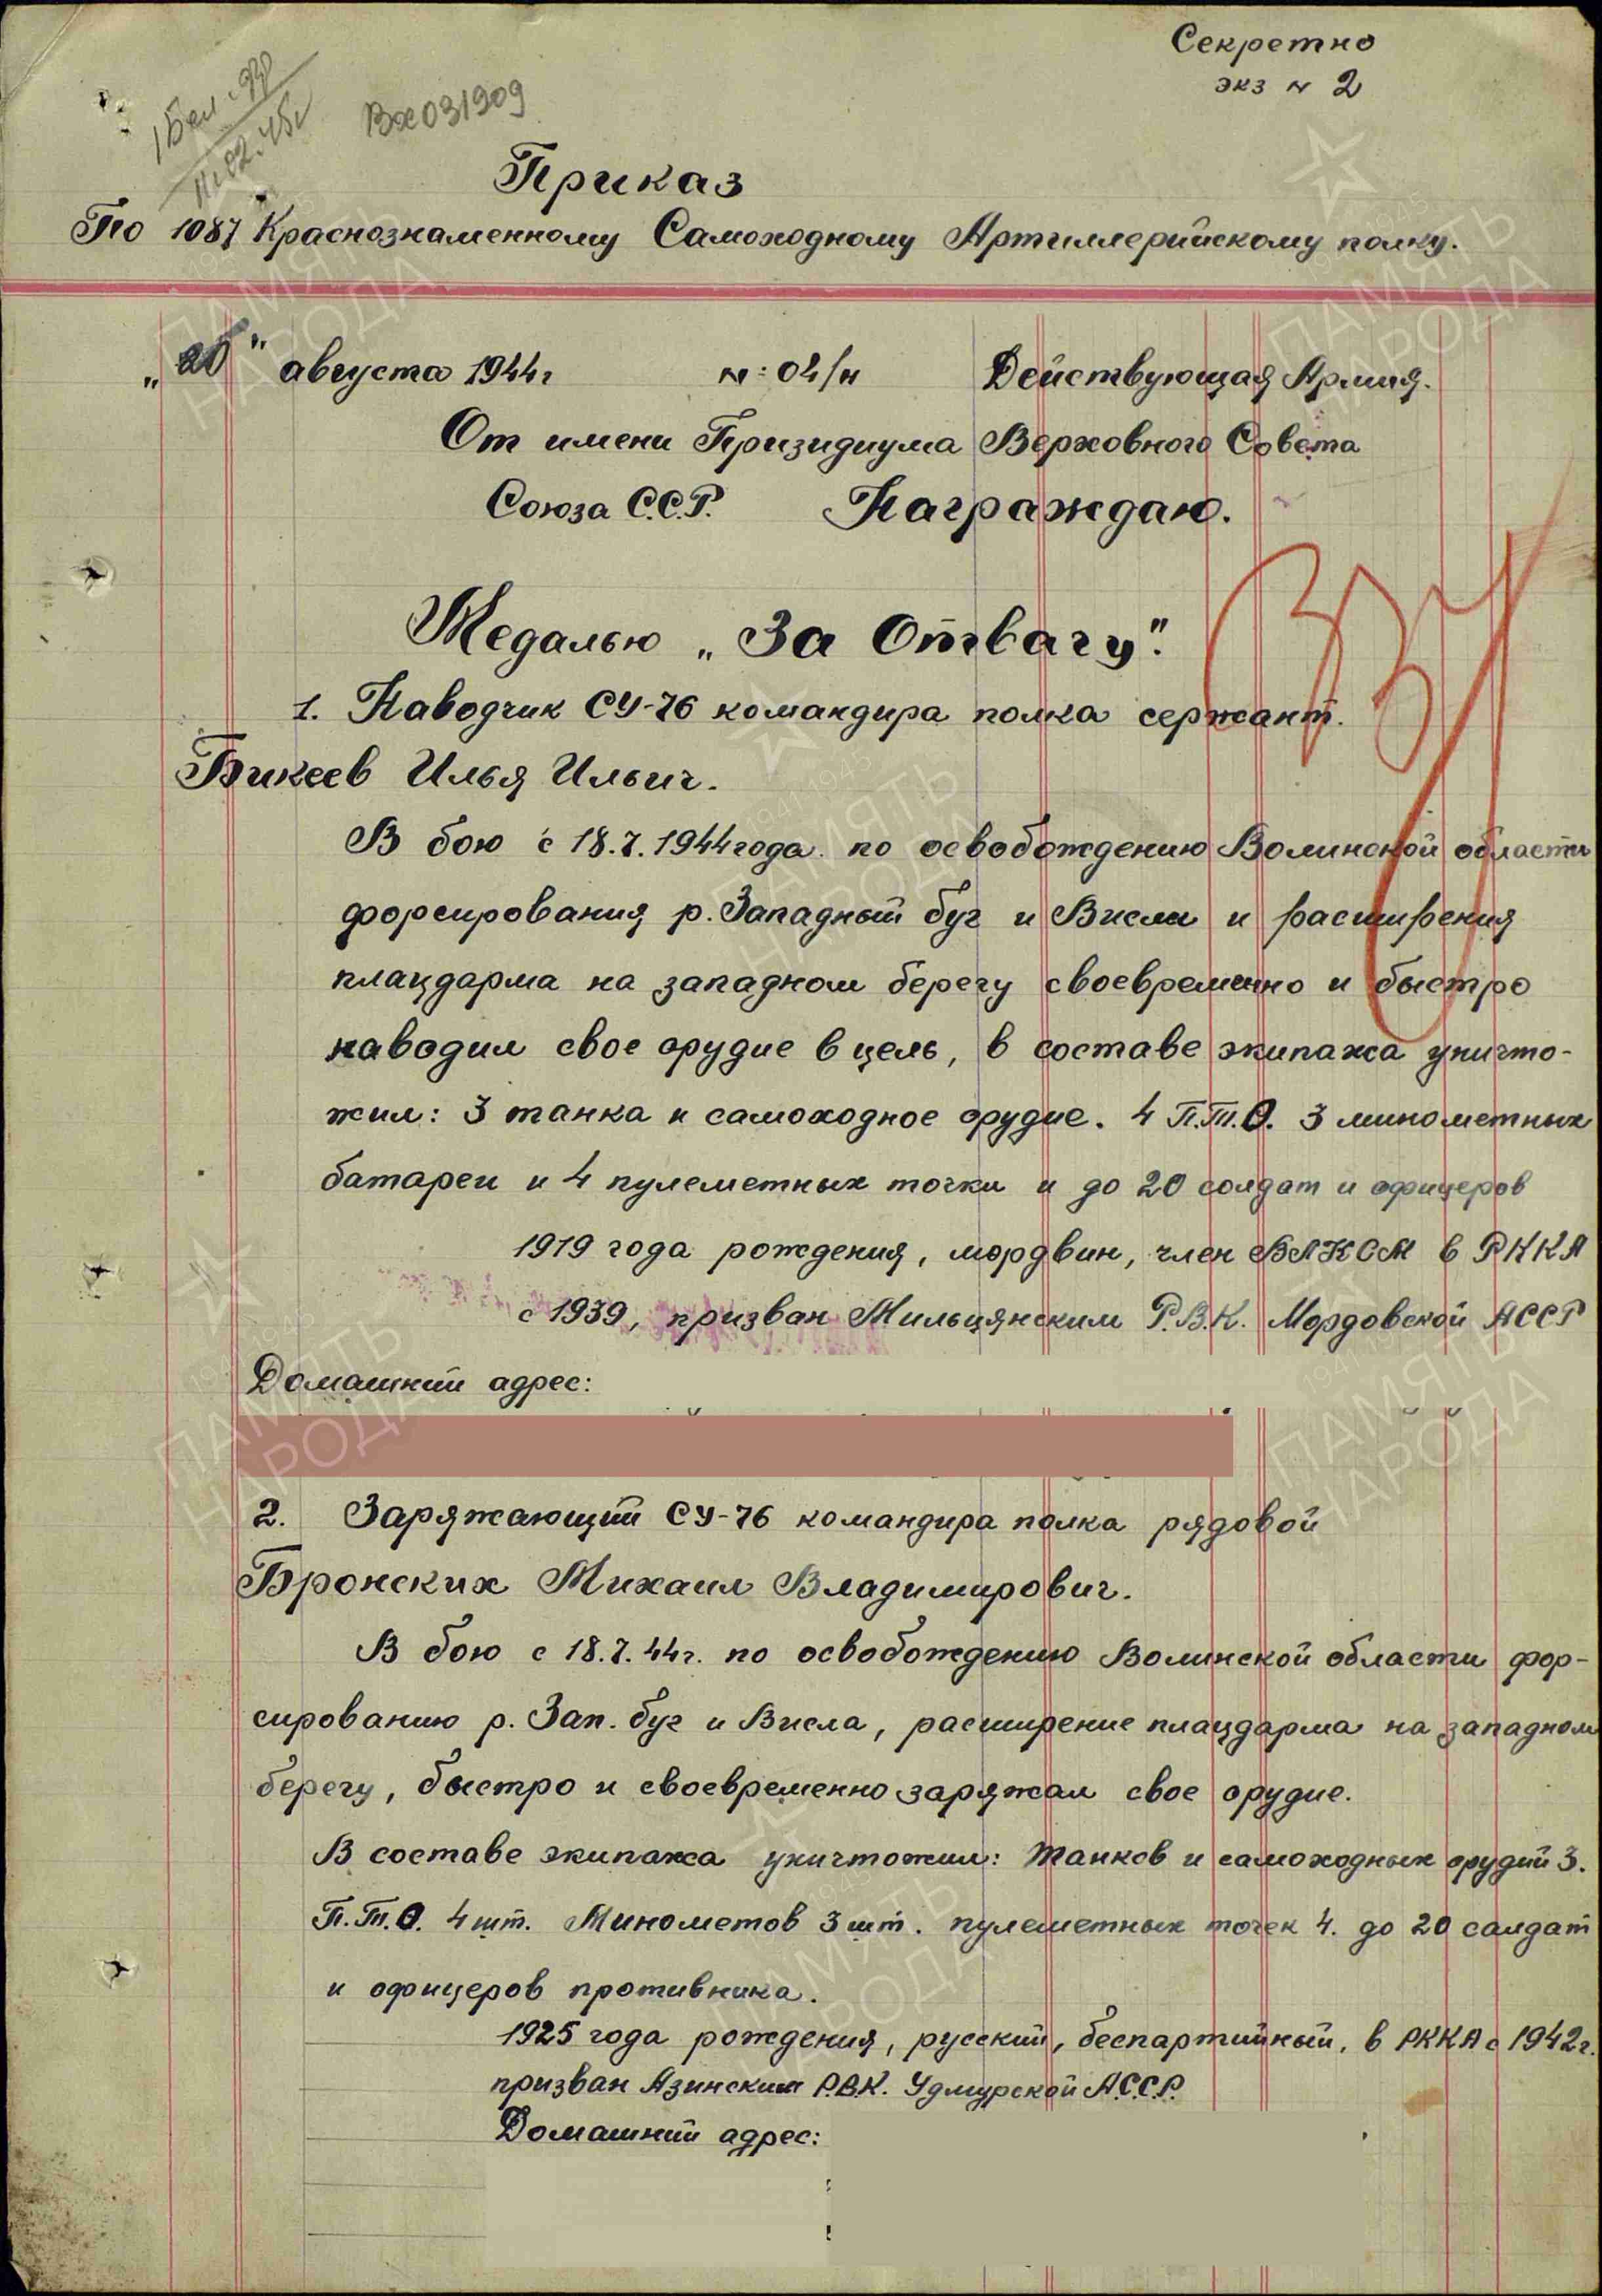 Секретно
экз № 2
1 Бел.
11.02.45г
Вх 031909
Приказ
По 1087 Краснознаменному Самоходному Артиллерийскому полку.
августа 1944г № 04/н Действующая Армия.
От имени Призидиума Верховного Совета
Союза С.С.Р. Награждаю.
Медалью „За Отвагу".
1. Наводчик СУ-76 командира полка сержант.
Бикеев Илья Ильич.
В бою с 18.7.1944 года. по освобождению Волинской области
форсирования р. Западный буг и Висла и расширения
плацдарма на западном берегу своевременно и быстро
наводил свое орудие в цель, в составе экипажа уничто-
жил: 3 танка и самоходное орудие. 4 П.Т.О. 3 минометных
батареи и 4 пулеметных точки и до 20 солдат и офицеров
1919 года рождения, мордвин, член ВЛКСМ в РККА
с 1939, призван Мильцянским Р.В.К. Мордовской АССР
Домашний адрес:
2. Заряжающий СУ-76 командира полка рядовой
Бронских Михаил Владимирович.
В бою с 18.7.44г. по освобождению Волинской области фор-
сированию р. Зап. буг и Висла, расширение плацдарма на западном
берегу, быстро и своевременно заряжал свое орудие.
В составе экипажа уничтожил: Танков и самоходных орудий 3.
П.Т.О. 4 шт. Минометов 3 шт. пулеметных точек 4. до 20 салдат
и офицеров противника.
1925 года рождения, русский, беспартийный, в РККА с 1942г.
призван Азинским Р.В.К. Удмурской А.С.С.Р.
Домашний адрес:
ПАМЯТЬ
НАРОДА
1941-1945